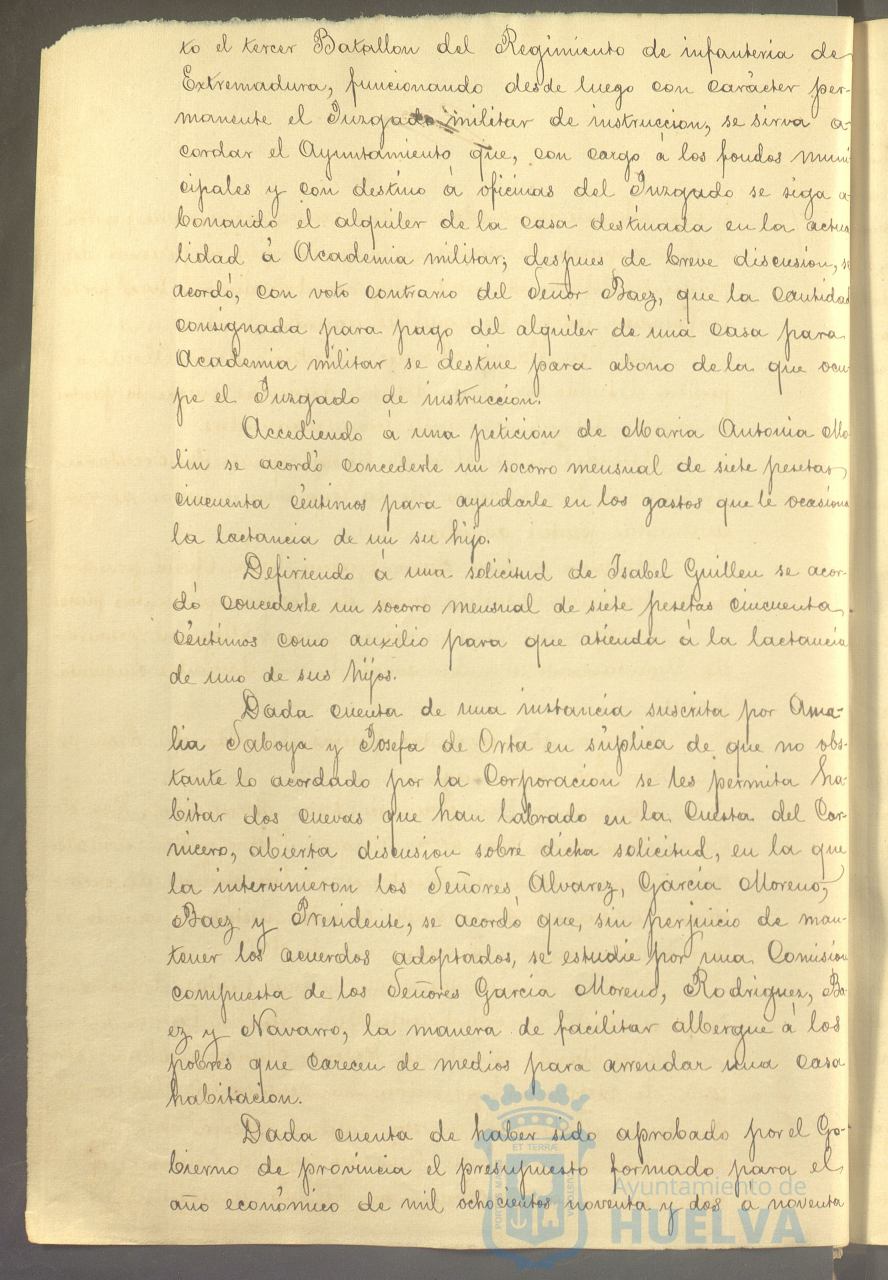 to el tercer Batallon del Regimiento de infanteria de
Extremadura, funcionando desde luego con carácter per-
manente el Juzgado militar de instruccion, se sirva a-
cordar el Ayuntamiento que, con cargo á los fondos muni
cipales y con destino á oficinas del Juzgado se siga a-
bonando el alquiler de la casa destinada en la actua
lidad á Academia militar; despues de breve discusion, se
acordó, con voto contrario del Señor Baez, que la cantidad
consignada para pago del alquiler de una casa para
Academia militar se destine para abono de la que ocu
pe el Juzgado de instruccion.
Accediendo á una peticion de Maria Antonia Mo
lin se acordó concederle un socorro mensual de siete pesetas,
cincuenta céntimos para ayudarle en los gastos que le ocasiona
la lactancia de un su hijo.
Defiriendo á una solicitud de Isabel Guillen se acor-
dó concederle un socorro mensual de siete pesetas cincuenta
céntimos como auxilio para que atienda á la lactancia
de uno de sus hijos.
Dada cuenta de una instancia suscrita por Ama-
lia Saboya y Josefa de Orta en súplica de que no obs-
tante lo acordado por la Corporacion se les permita ha-
bitar dos cuevas que han labrado en la Cuesta del Car-
nicero, abierta discusion sobre dicha solicitud, en la que
la intervinieron los Señores Alvarez, Garcia Moreno,
Baez y Presidente, se acordó que, sin perjuicio de man-
tener los acuerdos adoptados, se estudie por una Comision
compuesta de los Señores Garcia Moreno, Rodriguez, Ba-
ez y Navarro, la manera de facilitar albergue á los
pobres que carecen de medios para arrendar una casa
habitacion.
Dada cuenta de haber sido aprobado por el Go-
bierno de provincia el presupuesto formado para el
año económico de mil ochocientos noventa y dos a noventa
ET TERRÆ
Ayuntamiento de
HUELVA